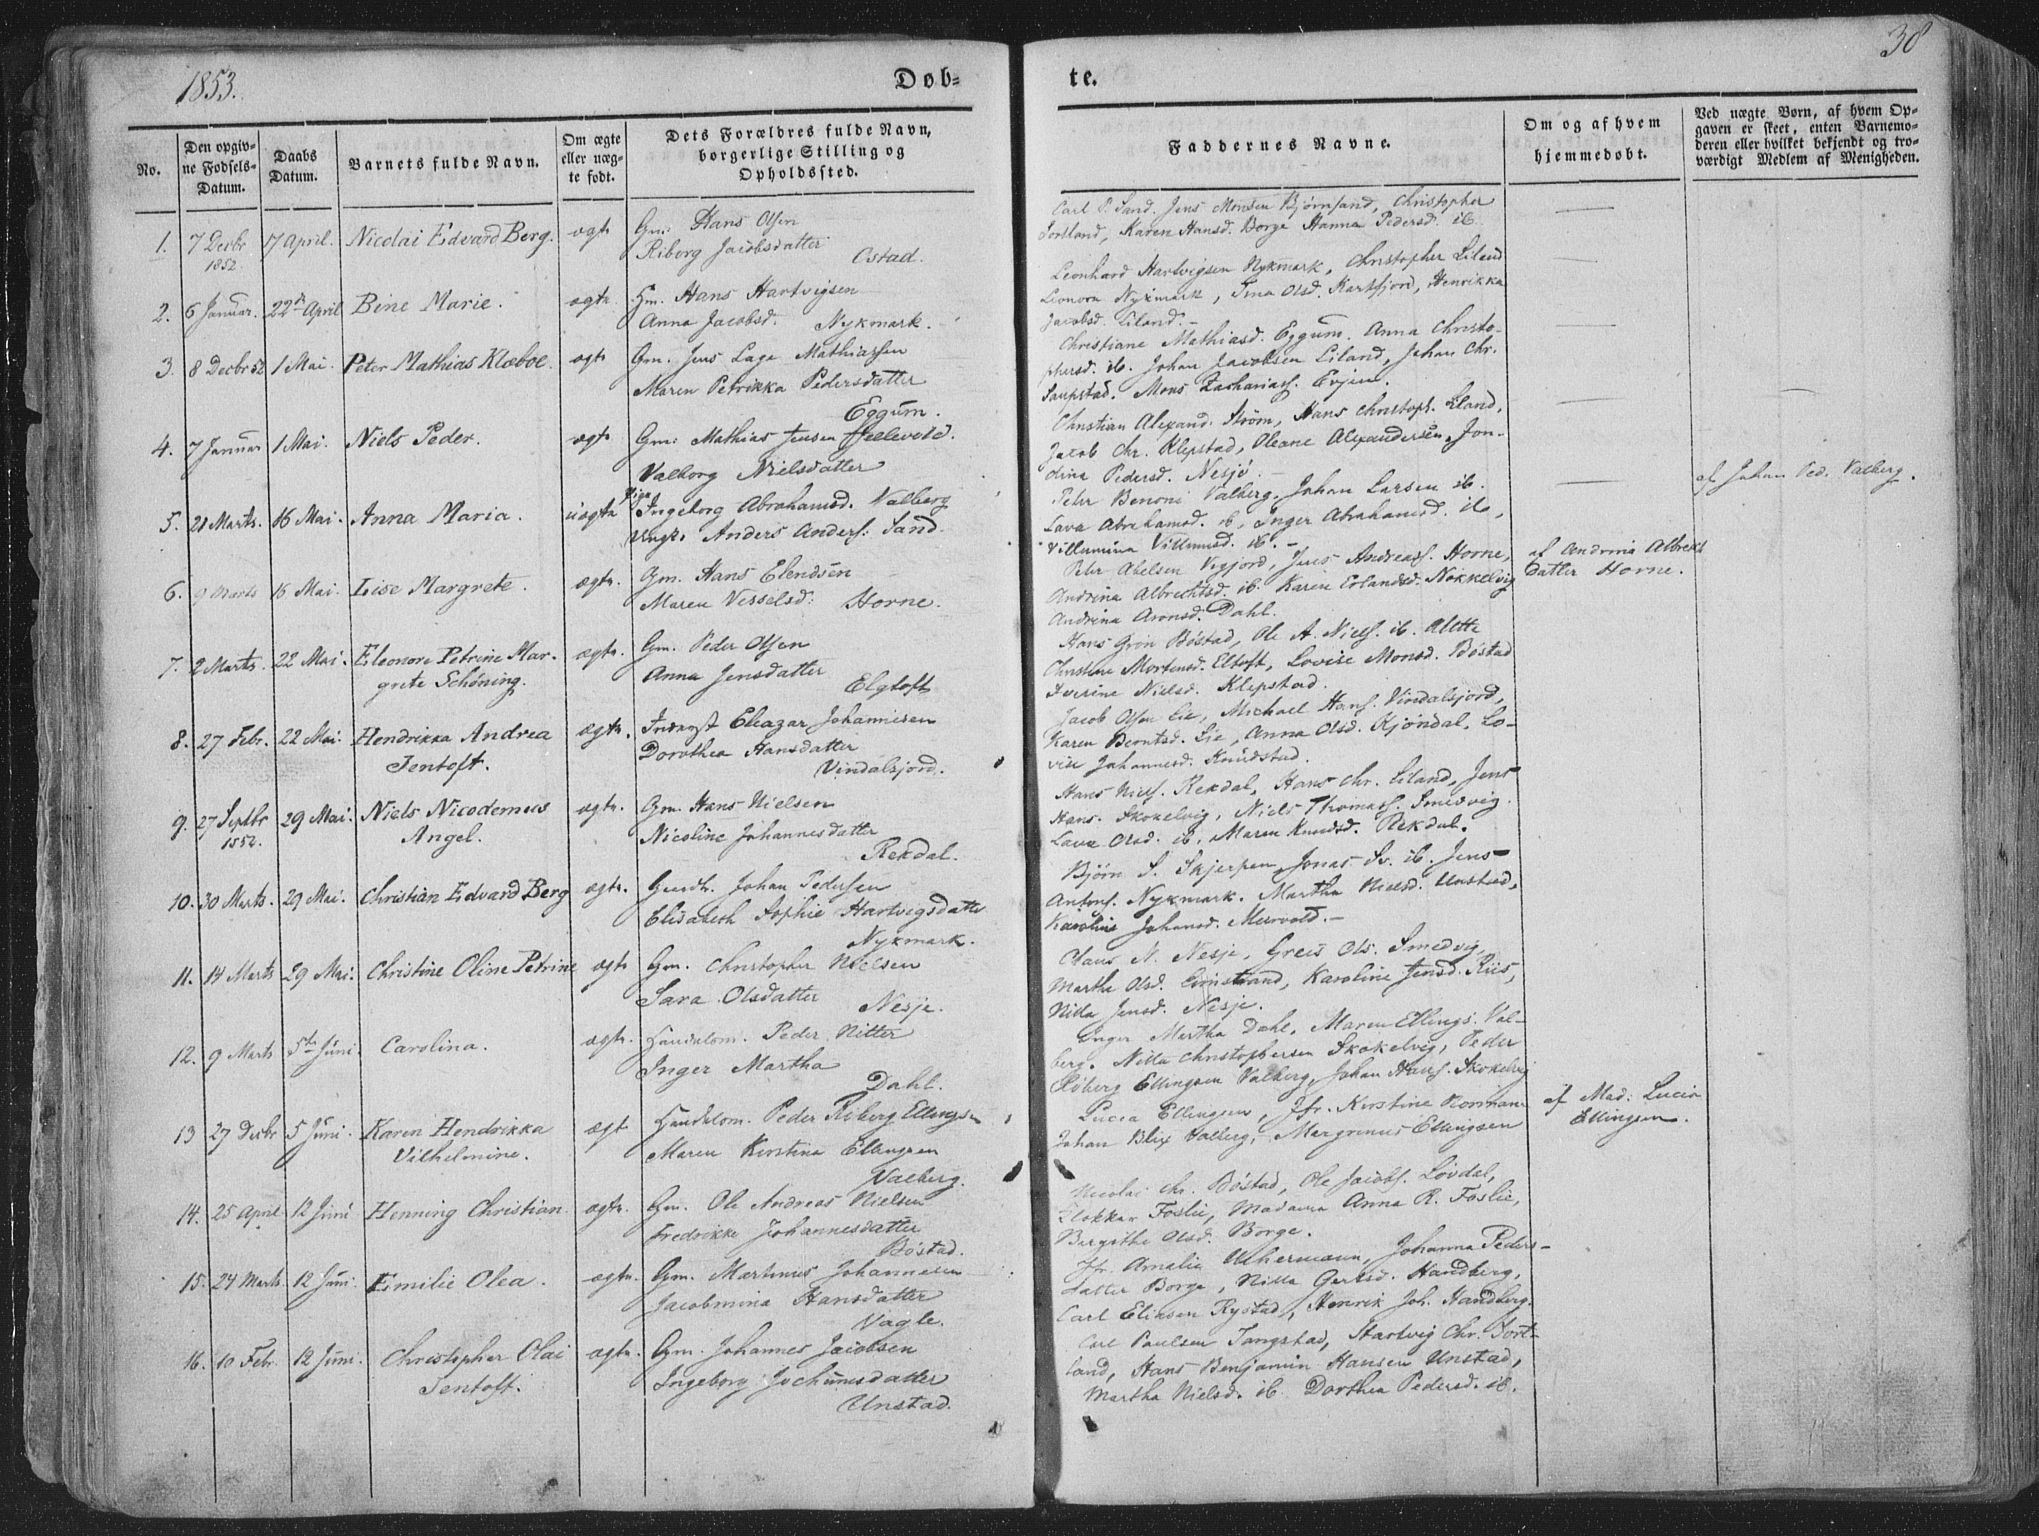 1853.
Døb-
No.
Den opgiv-
ne Fødsels-
Datum.
Daabs
Datum.
Barnets fulde Navn.
Om ægte
eller uæg-
te født.
Dets Forældres fulde Navn,
borgerlige Stilling og
Opholdssted.
1. 7 Decbr 1852 17 April. Nicolai Edvard Berg. ægte Gm: Hans Olsen
Riborg Jacobsdatter
Ostad.
2. 6 Januar. 22de April Bine Marie. ægte. Hm. Hans Hartvigsen
Anna Jacobsd. Nykmark.
3. 8 Decbr 52 1 Mai. Peter Mathias Klæboe. ægte Gm. Jens Lage Mathiassen
Maren Petrikka Pedersdatter
Eggum.
4. 7 Januar 1 Mai. Niels Peder. ægte Gm: Mathias Jensen
Valborg Nielsdatter
5. 21 Marts. 16 Mai. Anna Maria. uægte Pige Ingeborg Abrahamsd. Valberg
Ungk. Anders Anders. Sand.
6. 9 Marts 16 Mai. Lise Margrete. ægte. Gm. Hans Elendsen
Maren Vesselsd. Horne.
7. 2 Marts. 22 Mai. Eleonore Petrine Mar-
grete Schöning. ægte. Gm. Peder Olsen
Anna Jensdatter
Elgtoft
8. 27 Febr. 22 Mai. Hendrikka Andrea
Jentoft. ægte. Inderst Eleazar Johannesen
Dorothea Hansdatter
Vindalsjord.
9. 27 Septbr 1852. 29 Mai. Niels Nicodemus
Angel. ægte. Gm. Hans Nielsen
Nicoline Johannesdatter
Rekdal.
10. 30 Marts. 29 Mai. Christian Edvard Berg ægte. Johan Pedersen
Elisabeth Sophie Hartvigsdatter
Nykmark.
11. 14 Marts 29 Mai. Christine Oline Petrine ægte Gm. Christopher Nielsen
Sara Olsdatter Nesje.
12. 9 Marts 5te Juni. Carolina. ægte. Handelsm. Peder Nitter
Inger Martha
Dahl.
13 27 Decbr 5 Juni. Karen Hendrikka
Vilhelmine. ægt Handelsm. Peder Riberg Ellingsen
Maren Kirstina Ellingsen
Valberg.
14. 25 April 12 Juni Henning Christian ægte. Gm. Ole Andreas Nielsen
Fredrikke Johannesdatter
Bøstad.
15. 24 Marts. 12 Juni. Emilie Olea. ægte. Gm. Martinus Johannesen
Jacobmina Hansdatter
Vagle.
16. 10 Febr. 12 Juni. Christopher Olai
Jentoft. ægte. Gm. Johannes Jacobsen
Ingeborg Jochumsdatter
Unstad.
38
te.
Faddernes Navne.
Om og af hvem
hjemmedøbt.
Ved uægte Børn, af hvem Op-
gaven er skeet, enten Barnemo-
deren eller hvilket bekjendt og tro-
værdigt Medlem af Menigheden.
Carl P. Sand. Jens Monsen Bjørnsand, Christopher
Sortland, Karen Hansd. Borge Hanna Pedersd. ib.
Leonhard Hartvigsen Nykmark, Christopher Liland
Leonora Nykmark, Trna Olsd. Kartfjord, Henrikka
Jacobsd. Liland.
Christiane Mathiasd. Eggum. Anna Christo-
phersd. ib. Johan Jacobsen Liland, Johan Chr.
Saupstad. Mons Zacharias. Evjen.
Christian Alexand. Strøm, Hans Christoph. Liland,
Jacob Chr. Klepstad, Oleane Alexandersen, Jon-
drina Pedersd. Nesje.
Petr Benoni Valberg. Johan Larsen ib.
Lava Abrahamsd. ib, Inger Abrahamsd. ib,
Villumina Villumsd. ib. -
af Johan Ped. Valberg.
Petr Abelsen Vigjord, Jens Andreass. Horne,
Andrina Albrechtsd. ib. Karen Erlandsd. Nøkkelvig
Andrina Aronsd. Dahl.
af Andrina Albrekts
datter Horne.
Hans Grön Bøstad, Ole A. Niels. ib. Alette
Christine Mortensd. Eltoft, Lovise Monsd. Bøstad
Iverine Nielsd. Klepstad.
Jacob Olsen Lie, Michael Hans. Vindalsjord,
Karen Berntsd. Lie, Anna Olsd. Kjøndal, Lo-
vise Johannesd. Knudstad.
Hans Niels. Rekdal, Hans Chr. Liland, Jens
Hans. Skokelvig, Niels Thomass. Smedvig
Lava Olsd. ib, Maren Knudsd. Rekdal.
Bjørn S. Skjerpen, Jonas Sv. ib. Jens
Antons. Nykmark. Martha Nielsd. Unstad,
Karoline Johansd. Mærvold. -
Claus N. Nesje, Greis Ols. Smedvig,
Martha Olsd. Limstrand, Karoline Jensd. Riis,
Nilla Jensd. Nesje.
Inger Martha Dahl, Maren Ellings. Val-
berg. Nilla Christophersen Skokelvig, Peder
Riberg Ellingsen Valberg, Johan Hans. Skokelvig
Lucia Ellingsen, Jfr. Kirstine Normann
Johan Blix Valberg, Margrenus Ellingsen
af Mad: Lucia
Ellingsen.
Nicolai Chr. Bøstad, Ole Jacobs. Løvdal,
Klokker Foslie, Madama Anna R. Foslie,
Bergithe Olsd. Borge.
Jfr. Amalie Uchermann, Johanna Peders-
datter Borge, Nilla Gertsd. Handberg,
Carl Eliesen Rystad, Henrik Joh. Handberg.
Carl Paulsen Tangstad, Hartvig Chr. Sort-
land, Hans Benjamin Hansen Unstad,
Martha Nielsd. ib Dorthea Pedersd. ib.